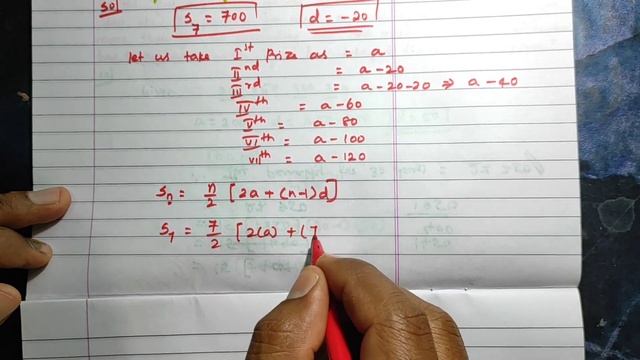 Sol
S₇ = 700 d = -20
let us take Iˢᵗ Prize as = a
IIⁿᵈ = a - 20
IIIʳᵈ = a - 20 - 20 ⇒ a - 40
IVᵗʰ = a - 60
Vᵗʰ = a - 80
VIᵗʰ = a - 100
VIIᵗʰ = a - 120
Sₙ = n/2 [2a + (n-1)d]
S₇ = 7/2 [2(a) + (7